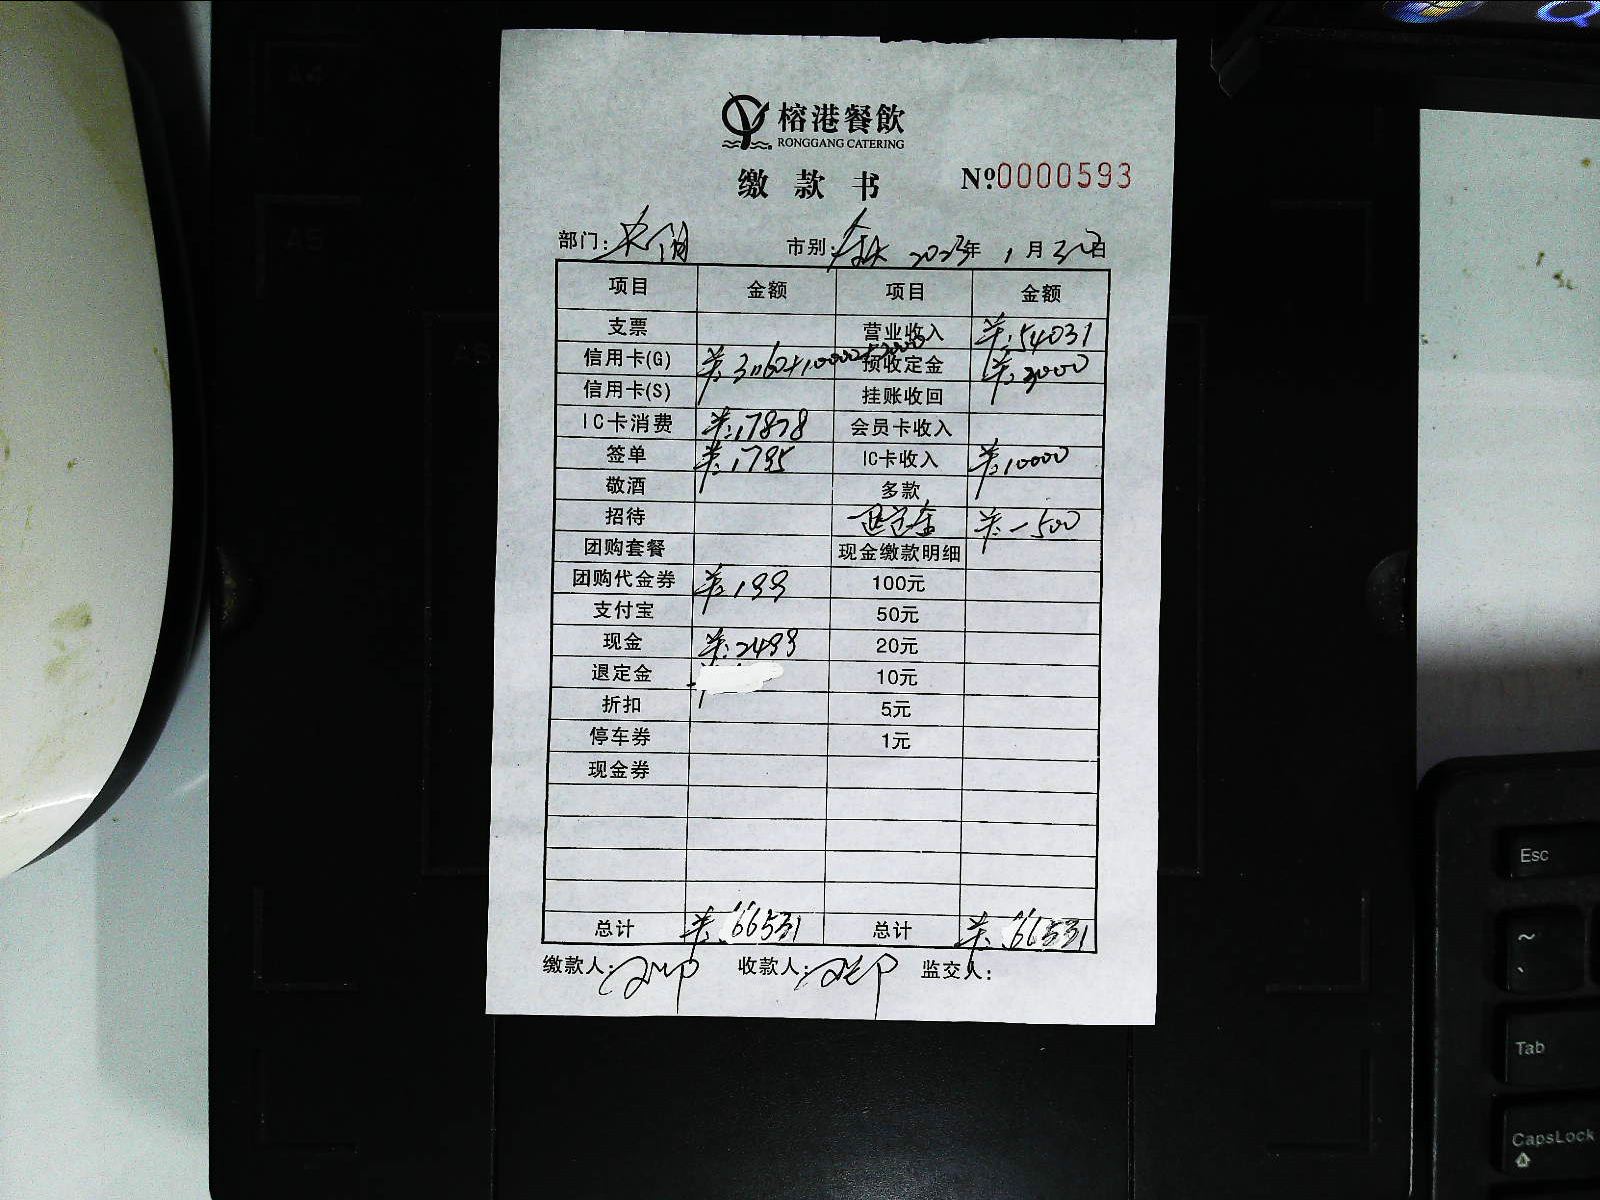 榕港餐飲
RONGGANG CATERING
缴款书
№0000593
部门: 市别: 2023年 1月 日
项目 金额 项目 金额
支票 营业收入 ¥:54031
信用卡(G) ¥:31160+10000+3000 预收定金 ¥:3000
信用卡(S) 挂账收回
IC卡消费 ¥:17878 会员卡收入
签单 ¥:1795 IC卡收入 ¥:10000
敬酒 多款
招待 退定金 ¥:-500
团购套餐 现金缴款明细
团购代金券 ¥:199 100元
支付宝 50元
现金 ¥:2499 20元
退定金 10元
折扣 5元
停车券 1元
现金券
总计 ¥:66531 总计 ¥:66531
缴款人: 收款人: 监交人:
A4
A5
Esc
~
Tab
CapsLock